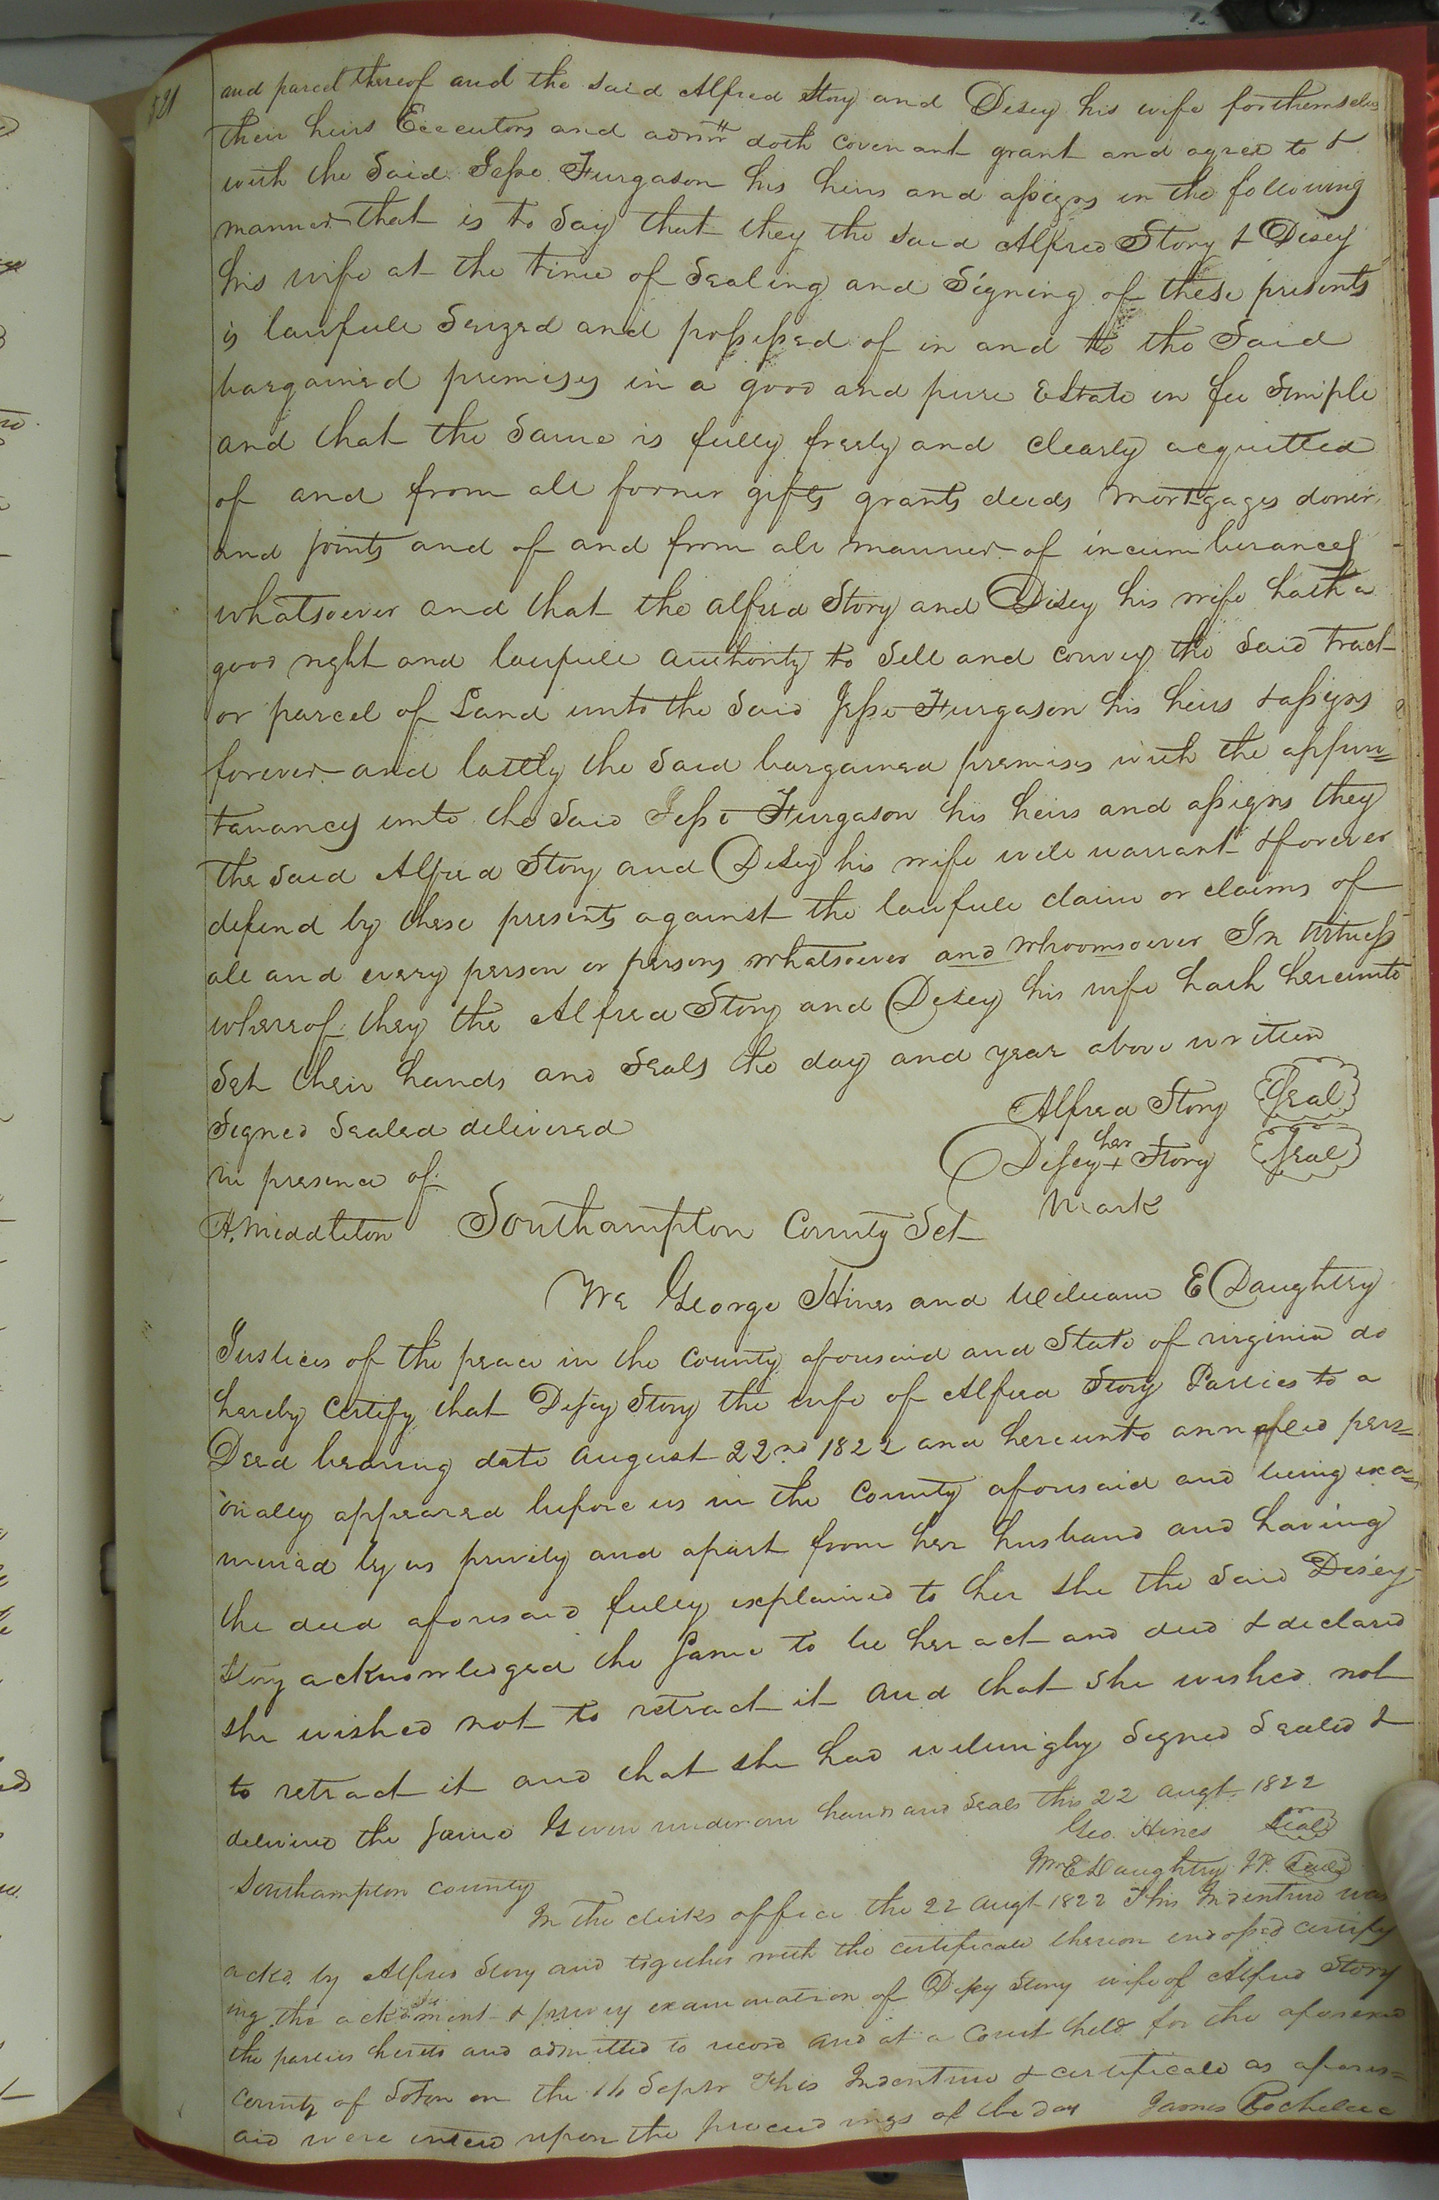 521
and parcel thereof and the said Alfred Story and Disey his wife for themselves
their heirs Executors and admrs doth covenant grant and agree to &
with the Said Jesse Furgason his heirs and assigns in the following
manner that is to Say that they the said Alfred Story & Disey
his wife at the time of Sealing and Signing of these presents
is lawfull Seized and possessed of in and to the Said
bargained premises in a good and pure Estate in fee Simple
and that the Same is fully freely and clearly acquitted
of and from all former gifts grants deeds mortgages doner
and joints and of and from all manner of incumberances
whatsoever and that the alfred Story and Disey his wife hath a
good right and lawfull authority to Sell and convey the Said tract
or parcel of Land unto the Said Jesse Furgason his heirs & assigns
forever and lastly the Said bargained premises with the appur=
tanancy unto the Said Jesse Furgason his heirs and assigns they
the Said Alfred Story and Disey his wife will warrant & forever
defend by these presents against the lawfull claim or claims of
all and every person or persons whatsoever and whoomsoever In witness
whereof they the Alfred Story and Disey his wife hath hereunto
Set their hands and Seals the day and year above written
Alfred Story Seal
Signed Sealed delivered
her
Disey + Story Seal
in presence of
mark
A. Middleton Southampton County Sct
We George Hines and William E Daughtry
Justices of the peace in the County aforesaid and State of virginia do
hereby Certify that Disey Story the wife of Alfred Story Parties to a
Deed bearing date august 22nd 1822 and hereunto annexed pers=
onally appeared before us in the County aforesaid and being exa=
mined by us privily and apart from her husband and having
the deed aforesaid fully explained to her she the Said Disey
Story acknowledged the Same to be her act and deed & declared
she wished not to retract it and that she wished not
to retract it and that she had willingly Signed Sealed &
delivered the Same Given under our hands and Seals this 22 augt. 1822
Geo. Hines Seal
Wm E Daughtry J.P. Seal
Southampton County
In the clerks office the 22 augt 1822 This Indenture was
ackd. by Alfred Story and together with the certificate thereon endorsed certify
ing the acknment & privey examination of Disey Story wife of Alfred Story
the parties hereto and admitted to record and at a Court held for the aforesaid
County of Soton on the 16 Septr This Indenture & certificate as afores=
aid were entered upon the proceedings of the day James Rochelle C